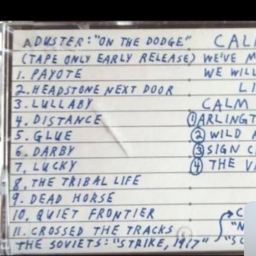 A DUSTER: "ON THE DODGE"
(TAPE ONLY EARLY RELEASE)
1. PAYOTE
2. HEADSTONE NEXT DOOR
3. LULLABY
4. DISTANCE
5. GLUE
6. DARBY
7. LUCKY
8. THE TRIBAL LIFE
9. DEAD HORSE
10. QUIET FRONTIER
11. CROSSED THE TRACKS
THE SOVIETS: "STRIKE, 1917"
CAL
WE'VE M
WE WILL
LI
CALM
① ARLINGT
② WILD
③ SIGN C
④ THE V